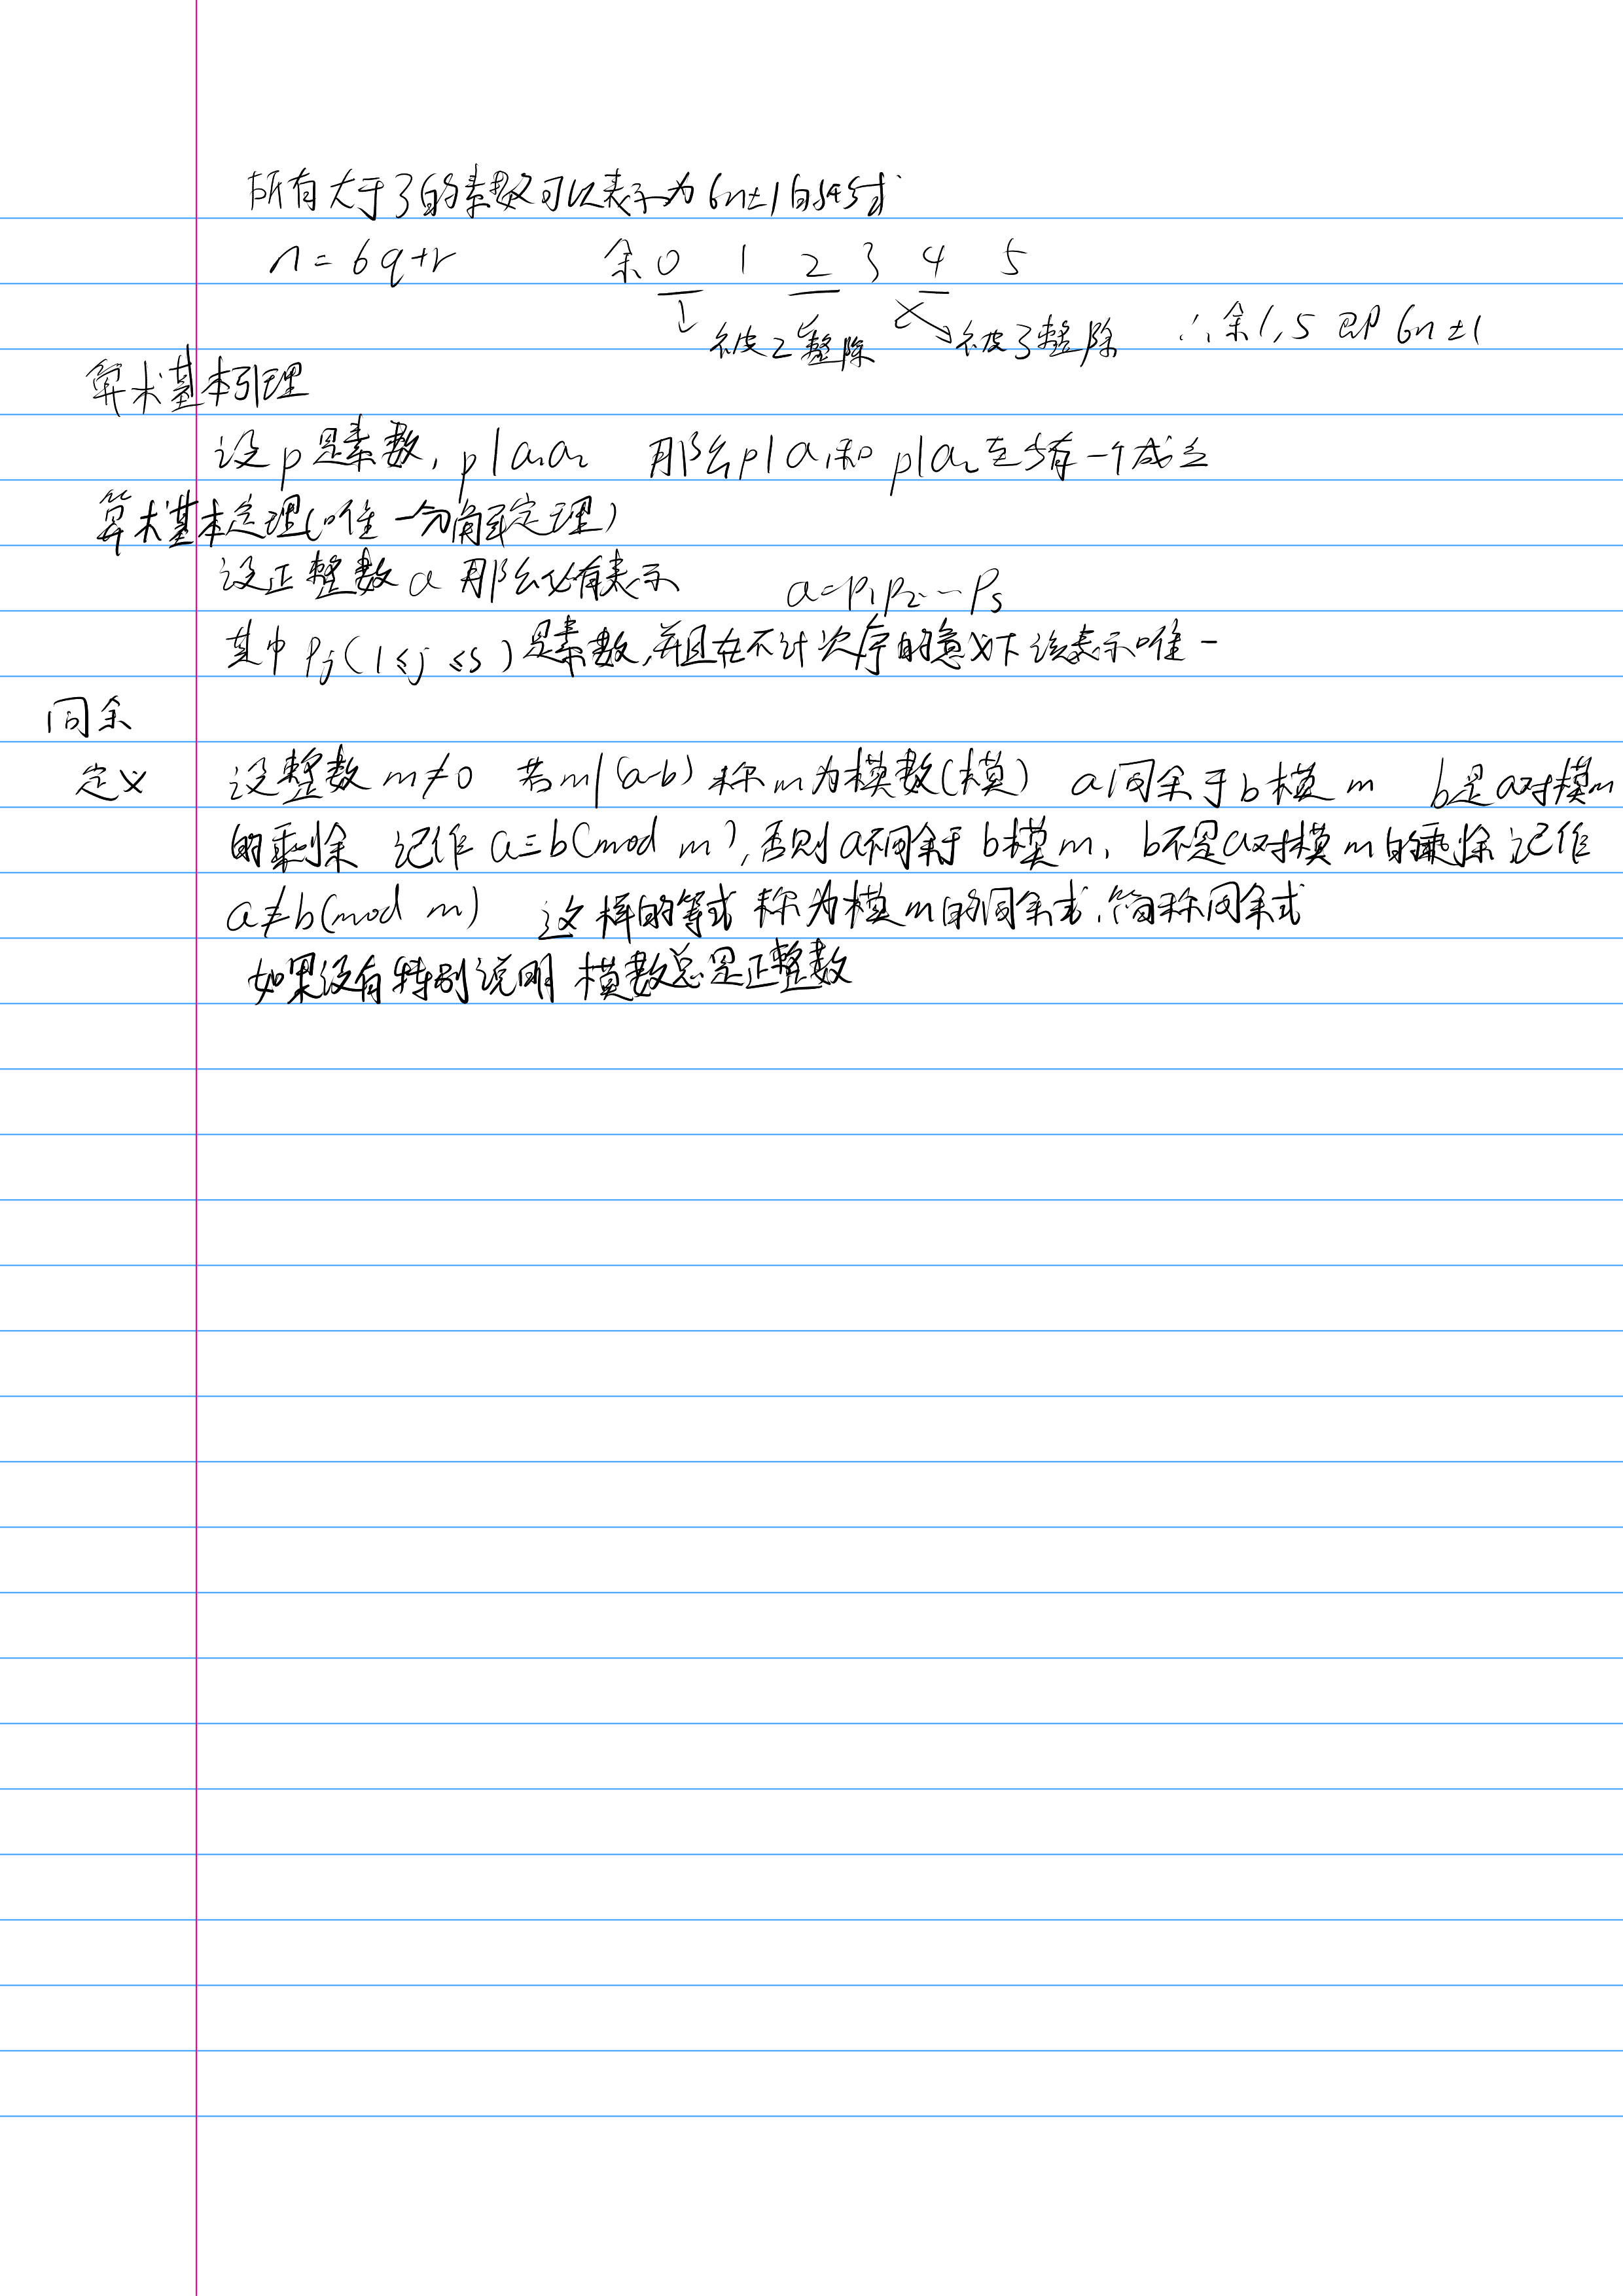 所有大于3的素数可以表示为6n±1的形式
n=6q+r 余0 1 2 3 4 5
被2整除 被3整除 ∴余1,5 即6n±1
算术基本引理
设p是素数, p|a₁a₂ 那么p|a₁和p|a₂至少有一个成立
算术基本定理(唯一分解定理)
设正整数a 那么必有表示 a=p₁p₂…Ps
其中Pj(1≤j≤s)是素数,并且在不计次序的意义下该表示唯一
同余
定义 设整数m≠0 若m|(a-b) 称m为模数(模) a同余于b模m b是a对模m
的剩余 记作a≡b(mod m),否则a不同余于b模m, b不是a对模m的剩余 记作
a≢b(mod m) 这样的等式 称为模m的同余式,简称同余式
如果没有特别说明 模数总是正整数